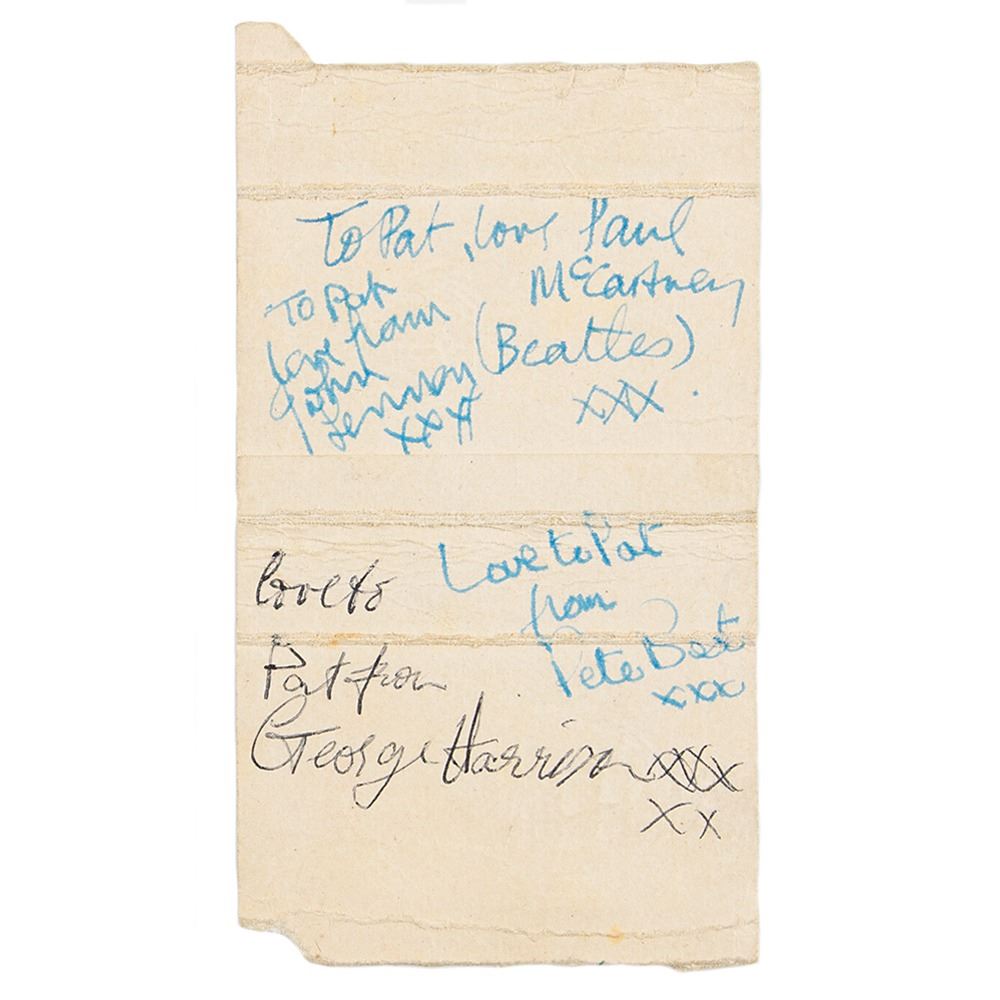 To Pat, love Paul
McCartney
(Beatles)
XXX.
To Pat
love from
John
Lennon
XXX
Love to Pat
from
Pete Best
xxx
love to
Pat from
George Harrison XXX
XX